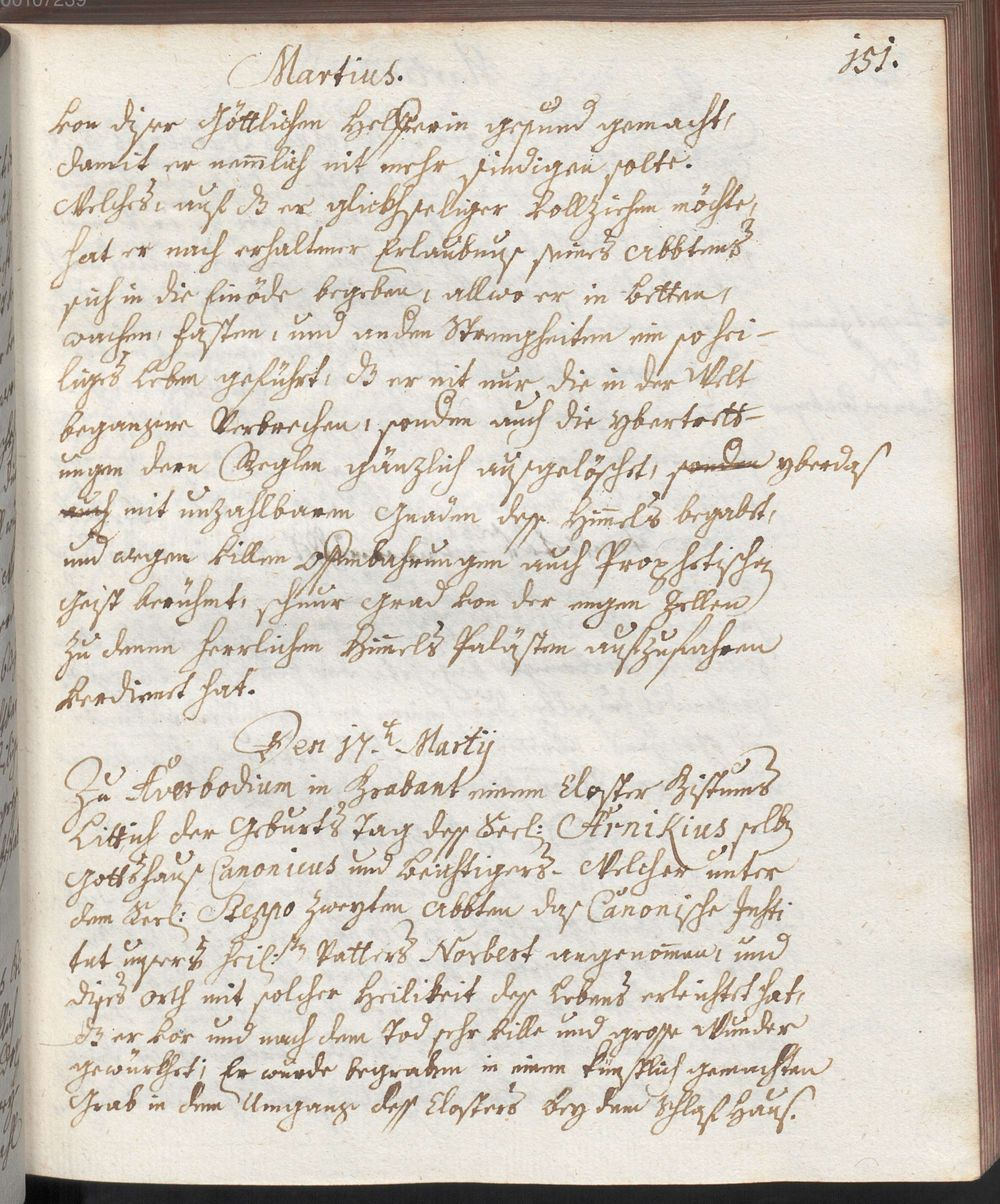 00107239
151.
Martius.
von diser Göttlichen Helfferin gesund gemacht,
damit er nemmlich nit mehr sindigen solte.
Welches, auf dz er glickhseliger vollziehen möchte,
hat er nach erhaltner Erlaubnus seines Abbtens
sich in die Einöde begeben, allwo er in betten,
wachen, fasten, und andern Strengheiten ein so hei-
liges Leben geführt, dz er nit nur die in der Welt
begangene Verbrechen, sondern auch die ybertrett-
ungen dern Reglen gänzlich ausgelöschet, sondern yberdas
auch mit unzahlbaren Gnaden dess Himmels begabet,
und wegen villen Offenbahrungen auch Prophetischen
Geist berühmt, schnur grad von der engen Zellen
zu denen herrlichen Himmels Palästen aufzufahren
verdienet hat.
Den 17.t Martij
Zu Averbodium in Brabant einem Closter Bistums
Littich der Geburts Tag dess Seel: Arnikius selbe
Gottshaus Canonicus und Beichtigers. Welcher unter
dem Seel: Steppo zweyten Abbten das Canonische Insti
tut unsers heil:sten Vatters Norbert angenommen, und
dises Orth mit solcher Heilikeit dess Lebens erleichtet hat,
dz er vor und nach dem Tod sehr ville und grosse Wunder
gewürkhet; Er wurde begraben in einem künstlich gemachten
Grab in dem Umgang dess Closters bey dem Schlaf Haus.